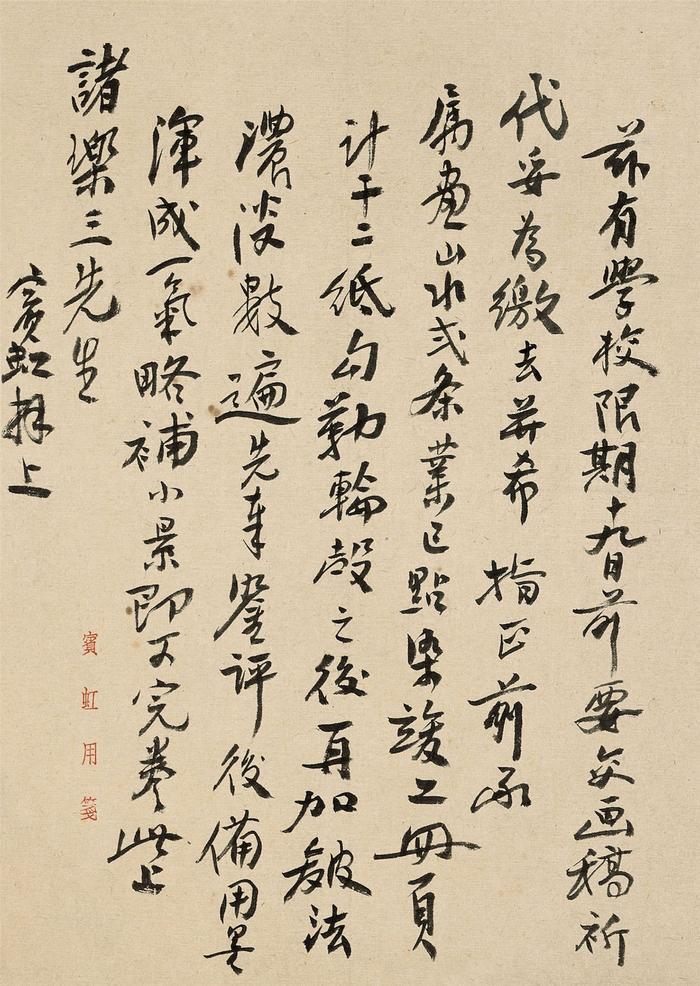 茲有學校限期十九日前要交画稿祈
代妥為繳去并希 指正前承
属畫山水弍条業已點染竣工冊頁
計十二紙勾勒輪殼之後再加皴法
濃淡數遍先奉鉴評後備用墨
渾成一氣略補小景即可完卷此上
諸樂三先生
賓虹拜上
賓虹用箋